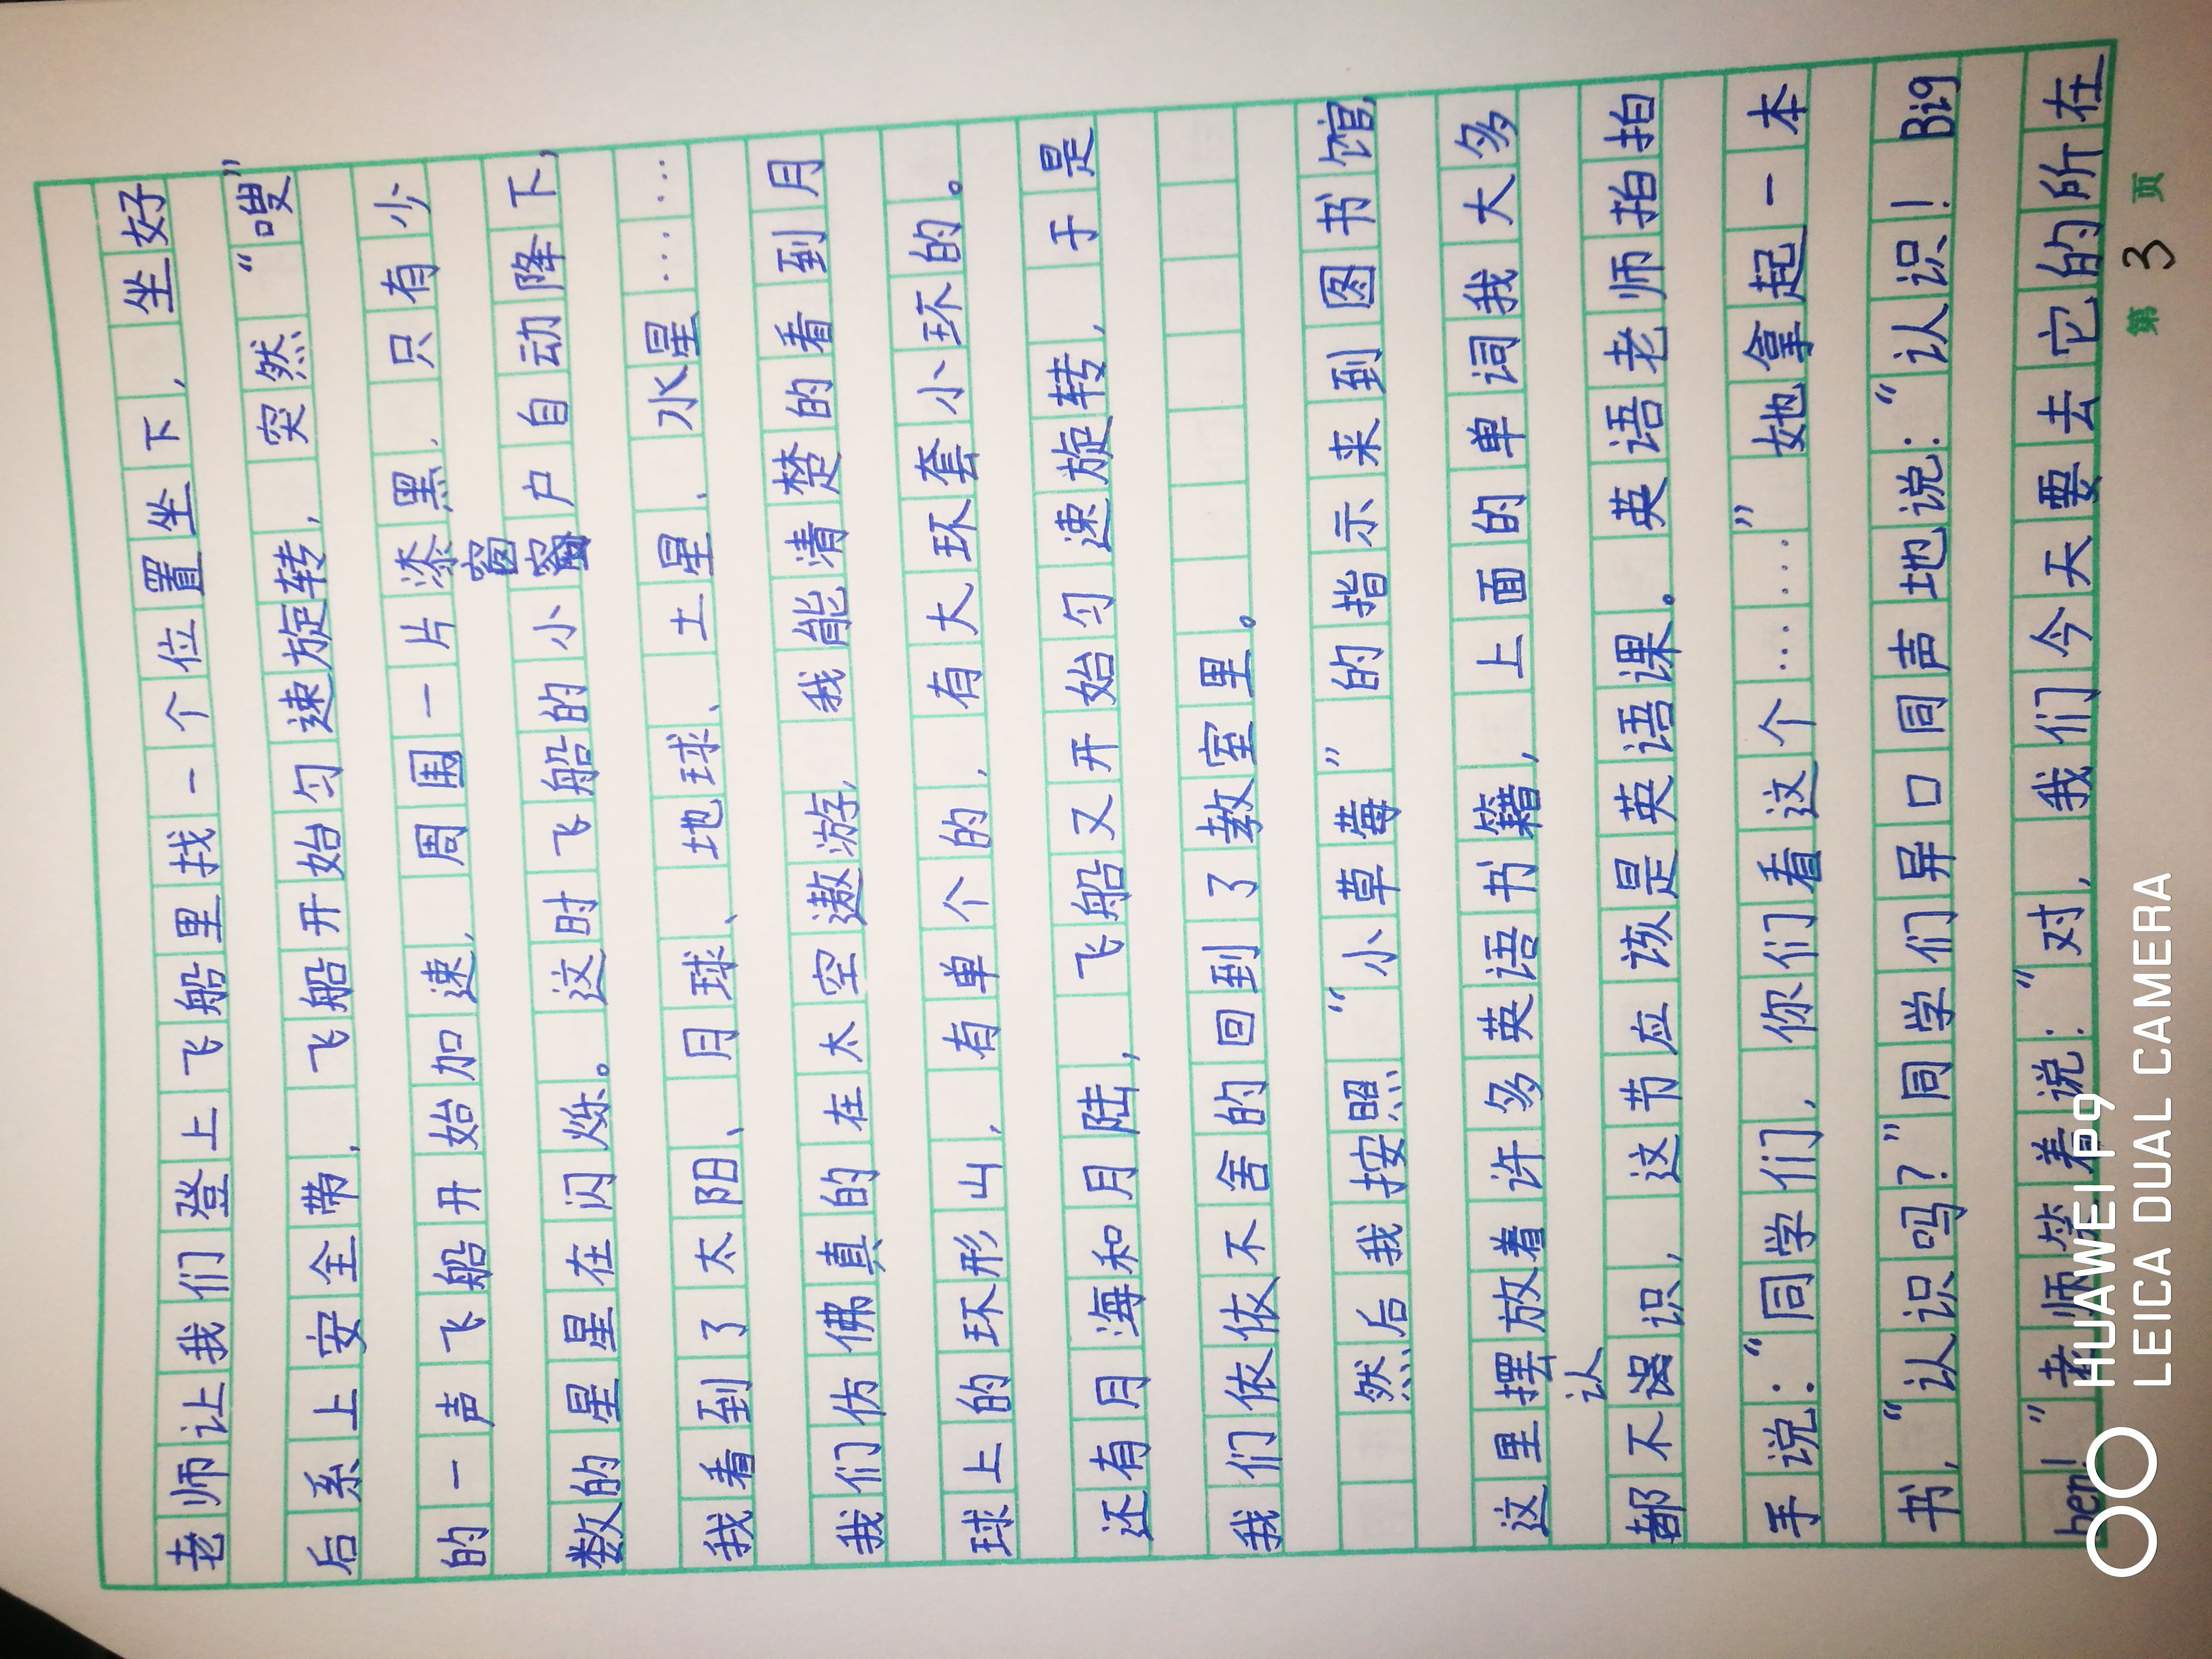 老师让我们登上飞船里找一个位置坐下,坐好
后系上安全带,飞船开始匀速旋转,突然“嗖”
的一声飞船开始加速,周围一片漆黑,只有少
数的星星在闪烁。这时飞船的小窗户自动降下,
我看到了太阳、月球、地球、土星、水星……
我们仿佛真的在太空遨游,我能清楚的看到月
球上的环形山,有单个的,有大环套小环的。
还有月海和月陆,飞船又开始匀速旋转,于是
我们依依不舍的回到了教室里。
然后我按照“小草莓”的指示来到图书馆,
这里摆放着许多英语书籍,上面的单词我大多
都不认识,这节应该是英语课。英语老师拍拍
手说:“同学们,你们看这个……”她拿起一本
书,“认识吗?”同学们异口同声地说:“认识!Big
ben!”老师笑着说:“对,我们今天要去它的所在
第3页
HUAWEI P9
LEICA DUAL CAMERA